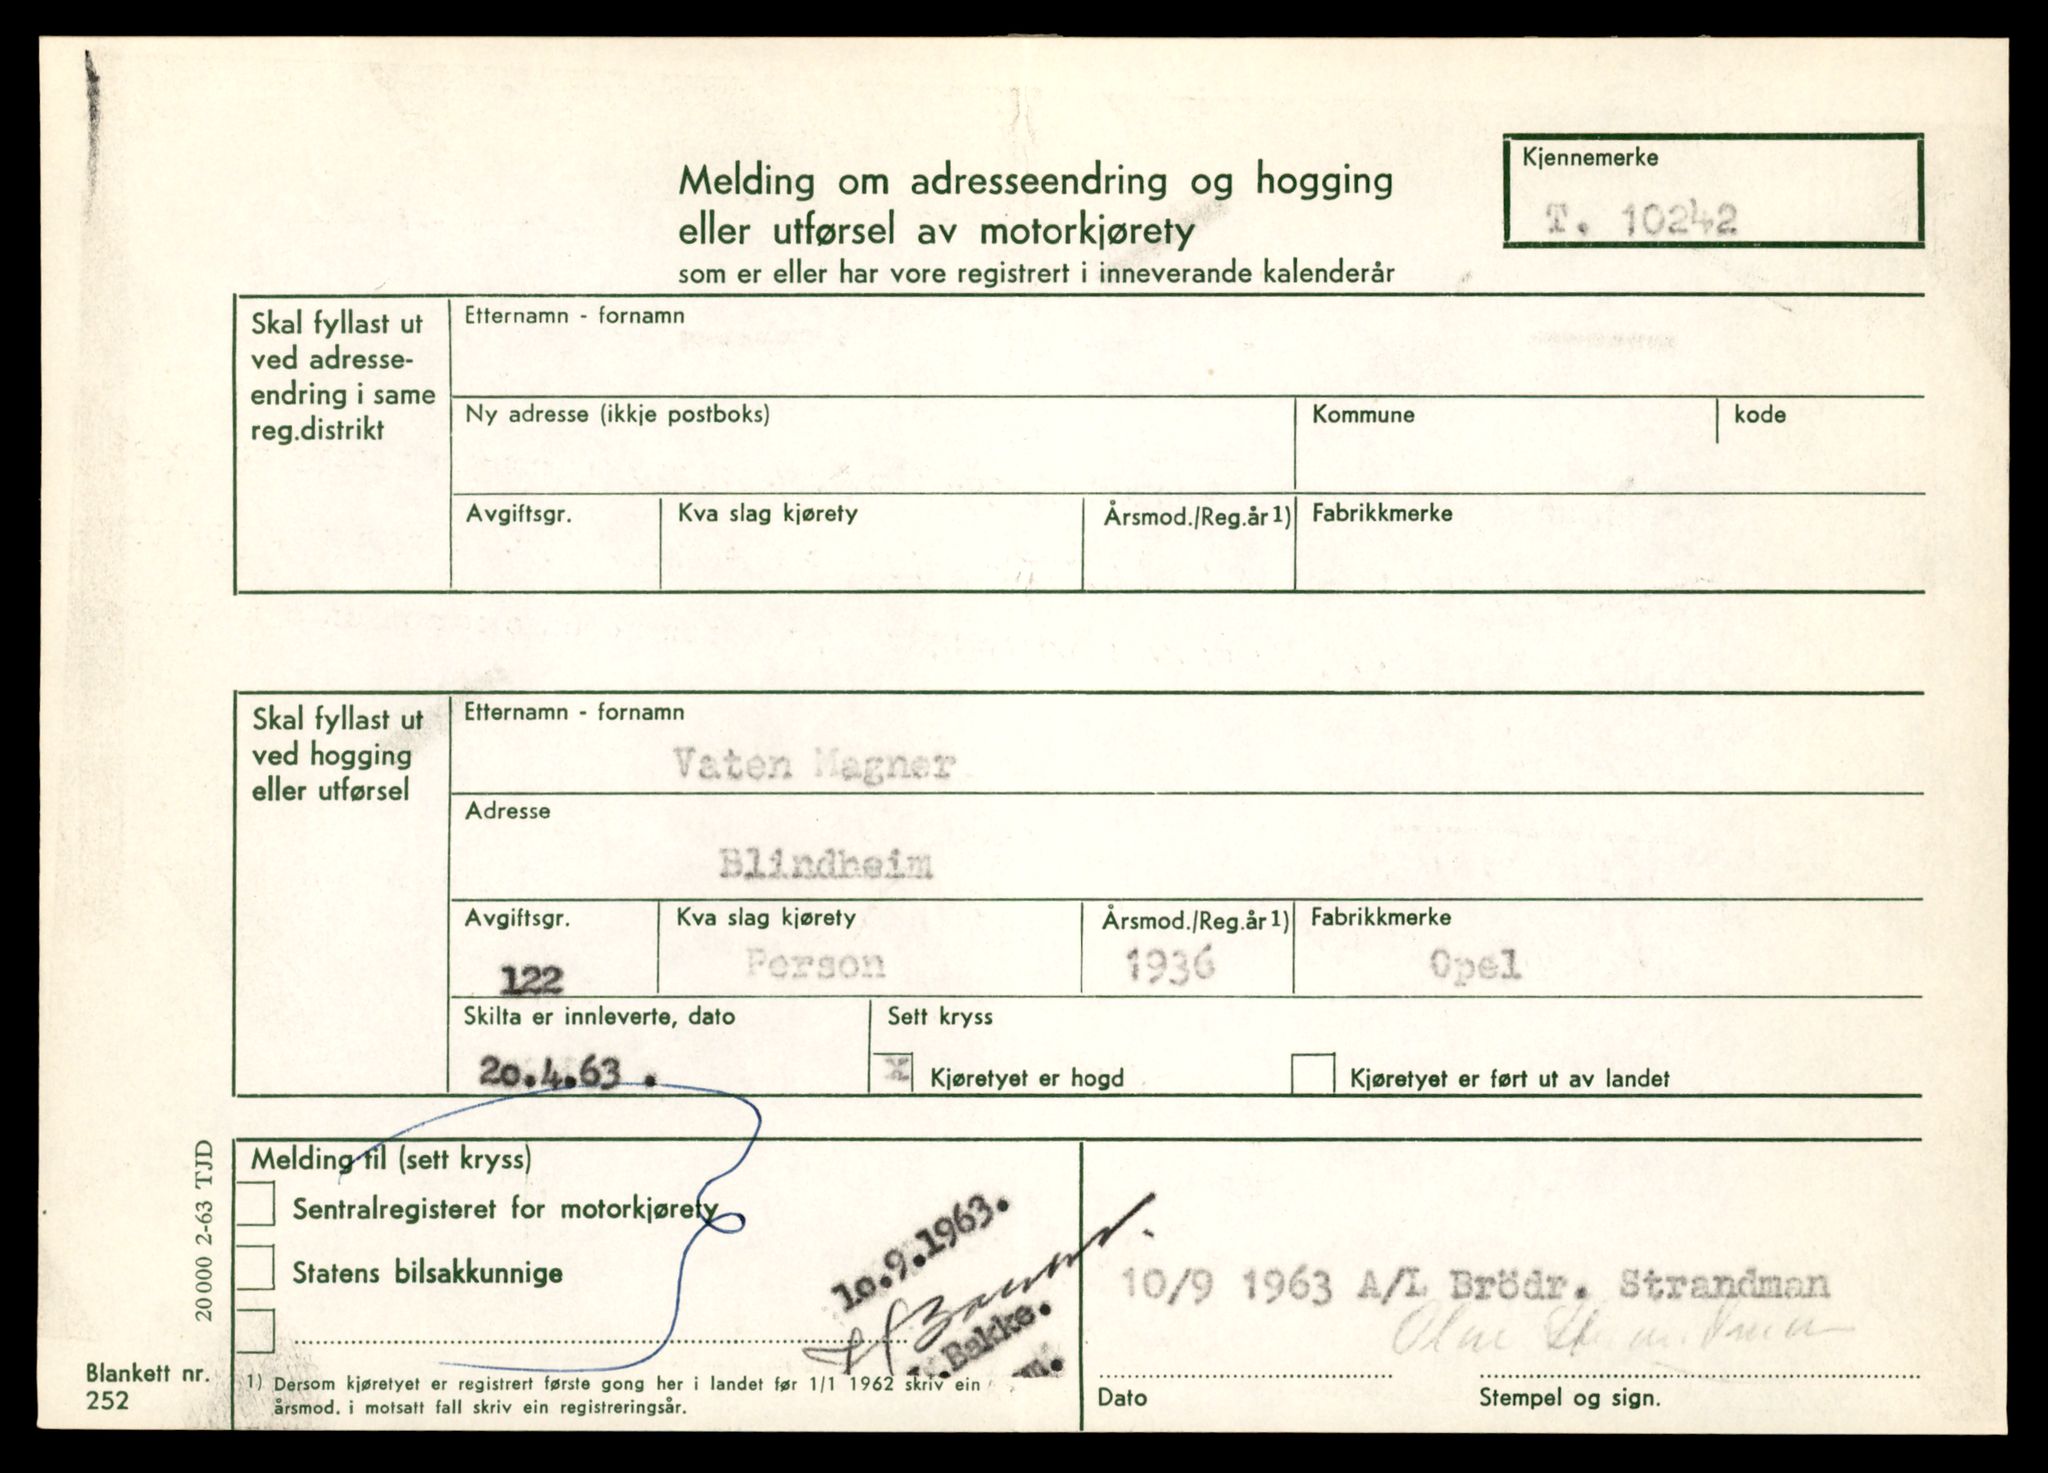 Melding om adresseendring og hogging
eller utførsel av motorkjørety
som er eller har vore registrert i inneverande kalenderår
Kjennemerke
T. 10242
Skal fyllast ut
ved adresse-
endring i same
reg.distrikt
Etternamn - fornamn
Ny adresse (ikkje postboks)
Kommune
kode
Avgiftsgr.
Kva slag kjørety
Årsmod./Reg.år 1)
Fabrikkmerke
Skal fyllast ut
ved hogging
eller utførsel
Etternamn - fornamn
Vaten Magner
Adresse
Blindheim
Avgiftsgr.
122
Kva slag kjørety
Person
Årsmod./Reg.år 1)
1936
Fabrikkmerke
Opel
Skilta er innleverte, dato
20.4.63 .
Sett kryss
x Kjøretyet er hogd
Kjøretyet er ført ut av landet
Melding til (sett kryss)
Sentralregisteret for motorkjørety
Statens bilsakkunnige
10.9.1963.
Bakke.
10/9 1963 A/L Brödr. Strandman
Dato
Stempel og sign.
1) Dersom kjøretyet er registrert første gong her i landet før 1/1 1962 skriv ein
årsmod. i motsatt fall skriv ein registreringsår.
20000 2-63 TJD
Blankett nr.
252